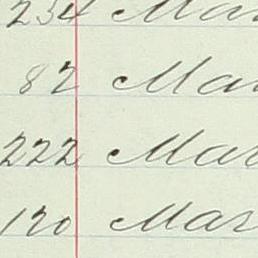 234 Mar
82 Mar
222 Mar
120 Mar